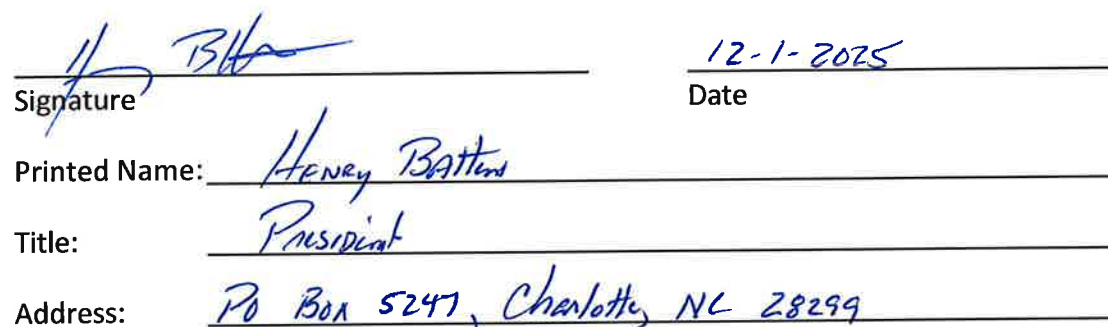 12-1-2025
Signature Date
Printed Name: Henry Battens
Title: President
Address: PO Box 5247, Charlotte, NC 28299